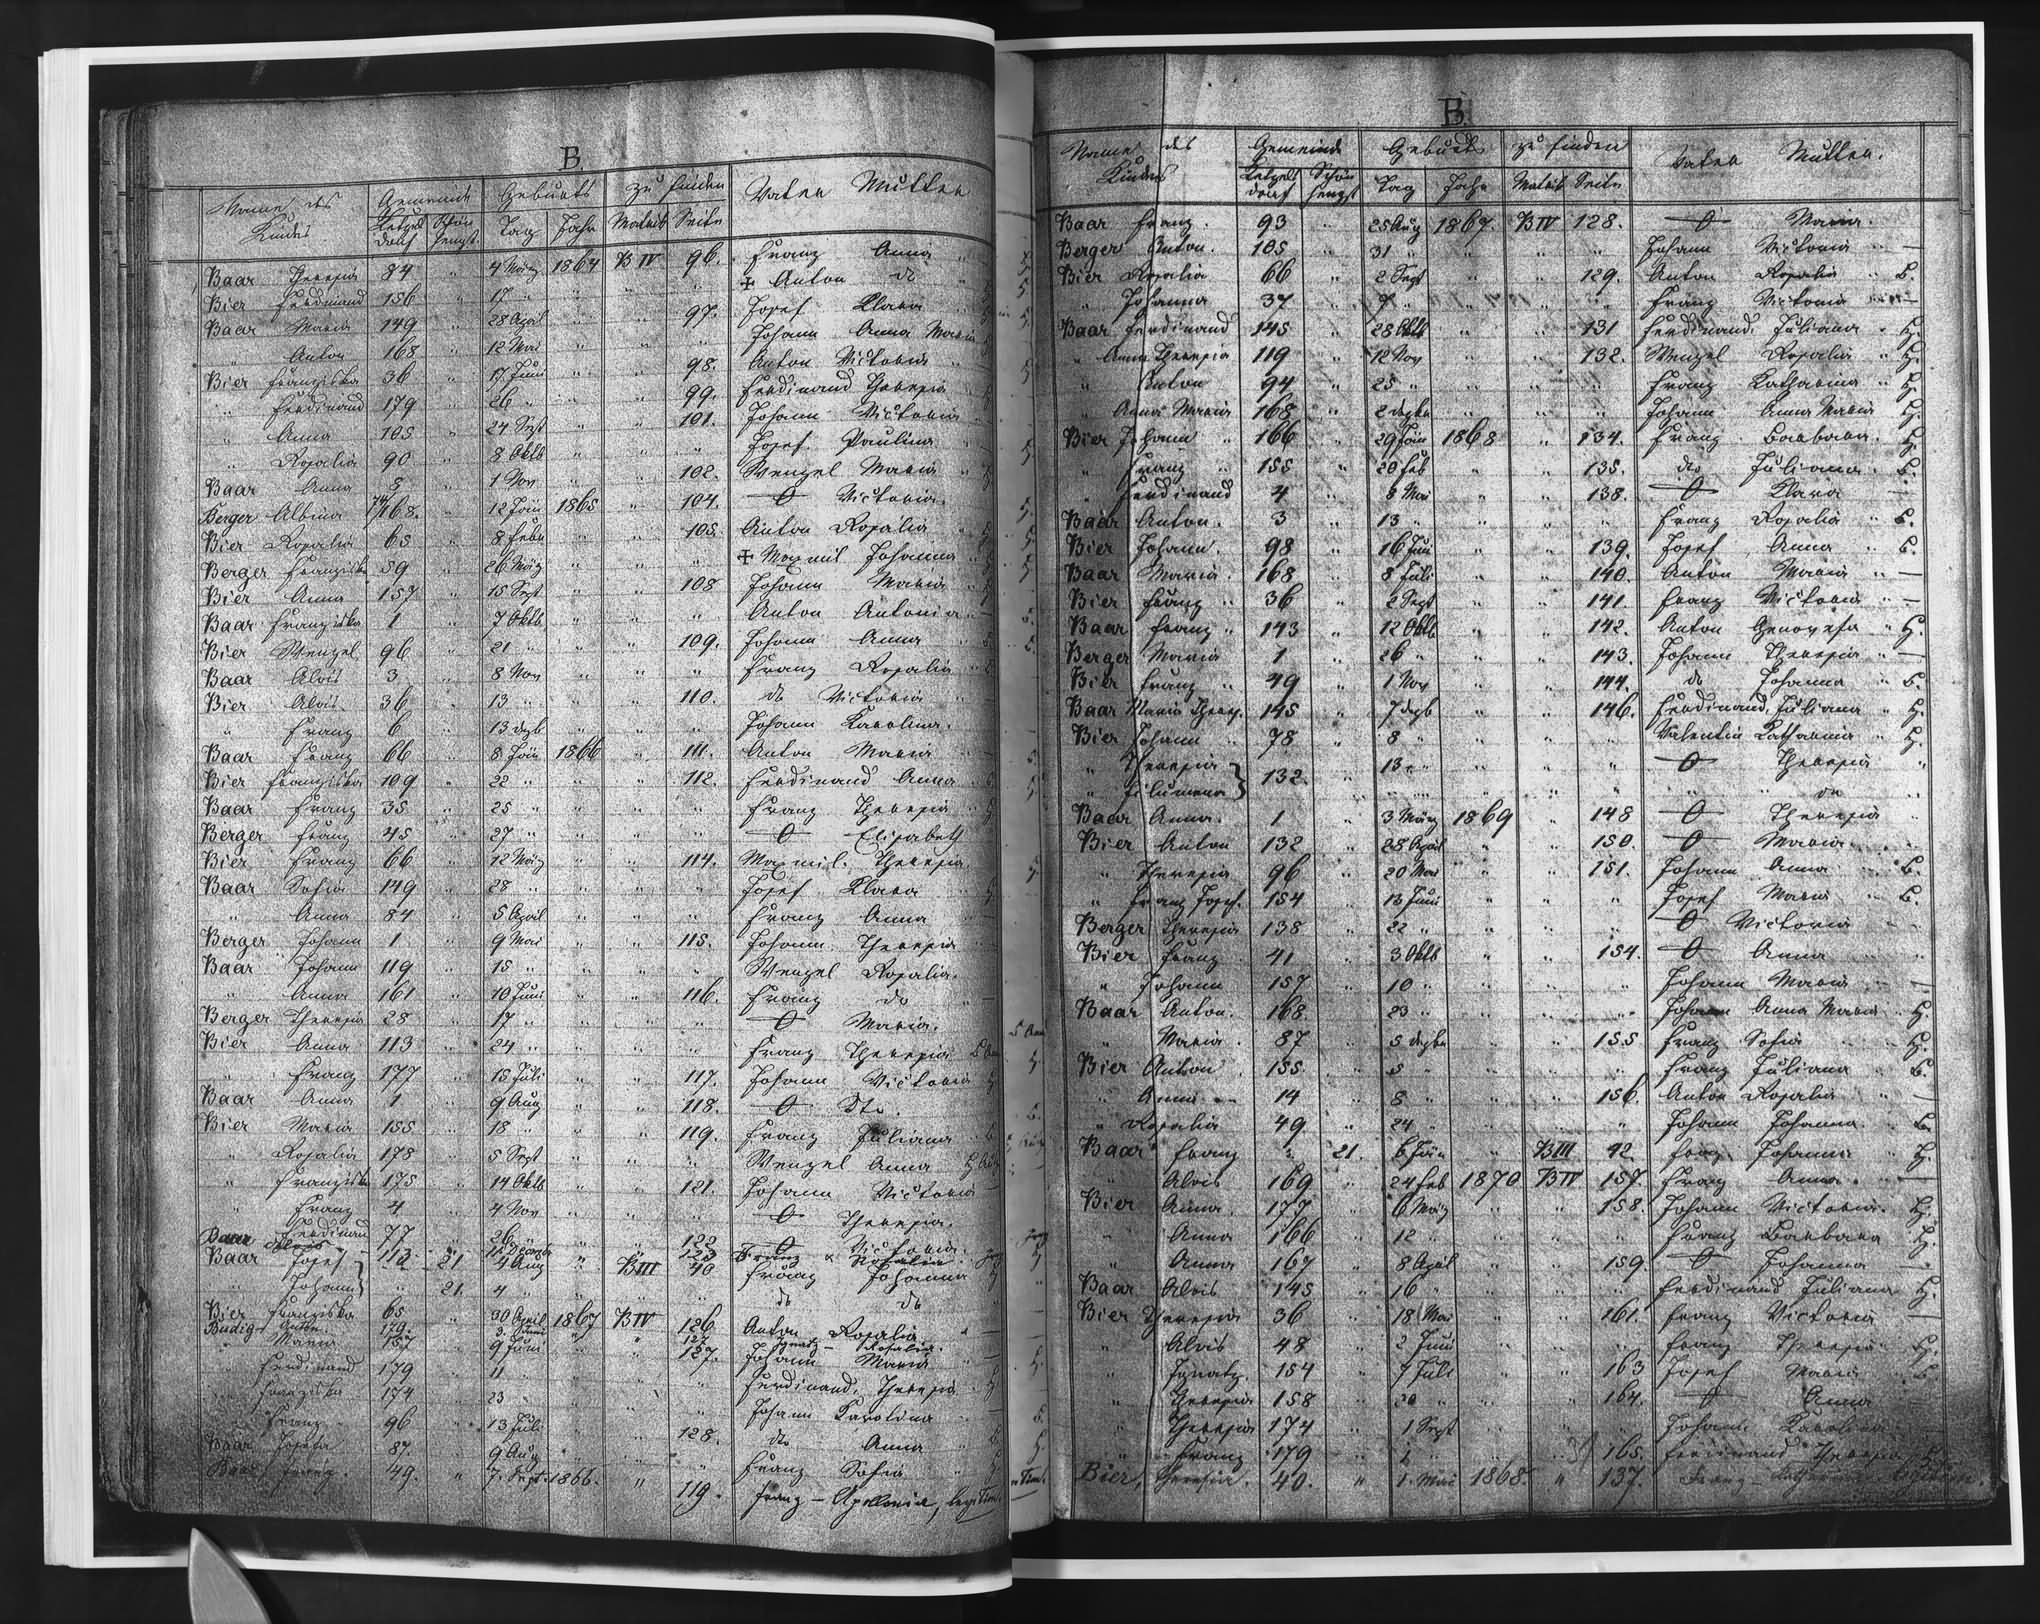 B.
Name des Kindes Gemeinde Geburts zu finden Vater Mutter
Ketzels dorf Schön hengst Tag Jahr Matrik Seite
Baar Theresia 84 " 4 März 1864 B IV 96. Franz Anna
Bier Ferdinand 156 " 17 " " " " ✠ Anton do
Baar Maria 149 " 28 April " " 97. Josef Klara
" Anton 168 " 12 Mai " " " Johann Anna Maria
Bier Franziska 36 " 17 Juni " " 98. Anton Victoria
" Ferdinand 179 " 26 " " " 99. Ferdinand Theresia
" Anna 105 " 24 Sept " " 101. Johann Victoria
" Rosalia 90 " 8 Oktb " " " Josef Paulina
Baar Anna 8 " 1 Nov " " 102. Wenzel Maria
Berger Albina 74/168. " 12 Jän 1865 " 104. O Victoria.
Bier Rosalia 65 " 8 Febr " " 105. Anton Rosalia
Berger Franziska 59 " 26 März " " " ✠ Maxmil Johanna
Bier Anna 157 " 15 Sept " " 108 Johann Maria
Baar Franziska 1 " 7 Oktb " " " Anton Antonia
Bier Wenzel 96 " 21 " " " 109. Johann Anna
Baar Alois 3 " 8 Nov " " " Franz Rosalia
Bier Alois 36 " 13 " " " 110. do Victoria
" Franz 6 " 13 dezb " " " Johann Karolina.
Baar Franz 66 " 8 Jän 1866 " 111. Anton Maria
Bier Franziska 109 " 22 " " " 112. Ferdinand Anna
Baar Franz 35 " 25 " " " " Franz Theresia
Berger Franz 45 " 27 " " " " O Elisabeth
Bier Franz 66 " 12 März " " 114. Maxmil. Theresia
Baar Sofia 149 " 28 " " " " Josef Klara
" Anna 84 " 5 April " " " Franz Anna
Berger Johann 1 " 9 Mai " " 115. Johann Theresia
Baar Johann 119 " 15 " " " " Wenzel Rosalia.
" Anna 161 " 10 Juni " " 116. Franz do
Berger Theresia 28 " 17 " " " " O Maria.
Bier Anna 113 " 24 " " " " Franz Theresia
" Franz 177 " 15 Juli " " 117. Johann Victoria
Baar Anna 1 " 9 Aug " " 118. O Th.
Bier Maria 155 " 18 " " " 119. Franz Juliana
" Rosalia 178 " 5 Sept " " " Wenzel Anna
" Franziska 175 " 14 Oktb " " 121. Johann Victoria
" Franz 4 " 4 Nov " " " O Theresia.
" Ferdinand 77 " 26 " " " 122 O Victoria.
Baar Alois 113 " 11 Dezemb " " 123 Franz x Rosalia
Baar Josef } " 21 4 Aug " B III 40 Franz Johanna
" Johann } " 21. 4 " " " " do do
Bier Franziska 65 " 30 April 1867 B IV 126 Anton Rosalia.
Budig Anton 179. 3. Juni " " 127. Ignatz – Rosalia.
" Maria 157 " 9 Juni " " 127. Johann Maria
" Ferdinand 179 " 11 " " " " Ferdinand. Theresia
" Franziska 174 " 23 " " " " Johann Karolina
" Franz 96 " 13 Juli " " 128. do Anna
Baar Josefa 87. " 9 Aug " " " Franz Sofia
Baar Franz. 49. " 7. Sept. 1866. " 119. Franz – Apollonia, legitim.
B.
Name des Kindes Gemeinde Geburts zu finden Vater Mutter.
Ketzels dorf Schön hengst Tag Jahr Matrik Seite
Baar Franz. 93 " 25 Aug 1867. B IV 128. O Maria.
Berger Anton. 105 " 31 " " " " Johann Victoria " —
Bier Rosalia 66 " 2 Sept " " 129. Anton Rosalia " L.
" Johanna 37 " 7 " " " " Franz Victoria " —
Baar Ferdinand 145 " 28 Oktb " " 131 Ferdinand. Juliana " H.
" Anna Theresia 119 " 12 Nov " " 132. Wenzel Rosalia " H.
" Anton 94 " 25 " " " " Franz Katharina " H.
" Anna Maria 168 " 2 dezbr " " " Johann Anna Maria H.
Bier Johann " 166 " 29 Jän 1868 " 134. Franz Barbara. H.
" Franz " 155 " 20 Feb " " 135. do Juliana. L.
" Ferdinand 4 " 8 Mai " " 138. O Klara —
Baar Anton. 3 " 13 " " " " Franz Rosalia " L.
Bier Johann. 98 " 16 Juni " " 139. Josef Anna " L.
Baar Maria. 168 " 8 Juli " " 140. Anton Maria " —
Bier Franz " 36 " 2 Sept " " 141. Franz Victoria " —
Baar Franz " 143 " 12 Oktb " " 142. Anton Genovefa " H.
Berger Maria 1 " 26 " " " 143. Johann Theresia " —
Bier Franz " 49 " 1 Nov " " 144. do Johanna " L.
Baar Maria Theres. 145 " 7 dezb " " 146. Ferdinand. Juliana " H.
Bier Johann " 78 " 8 " " " " Valentin Katharina " H.
" Theresia } 132. " 13 " " " " O Theresia "
" Filumena } " " " " " " do "
Baar Anna. 1 " 3 März 1869 " 148 O Theresia
Bier Anton 132 " 28 April " " 150. O Maria.
" Theresia 96 " 20 Mai " " 151. Johann Anna " L.
" Franz Josef. 154 " 13 Juni " " " Josef Maria " L.
Berger Theresia 138 " 22 " " " " O Victoria
Bier Franz . 41 " 3 Oktb " " 154. O Anna
" Johann 157 " 10 " " " " Johann Maria " —
Baar Anton. 168. " 23 " " " " Johann Anna Maria " H.
" Maria . 87 " 5 dezbr " " 155 Franz Sofia " H.
Bier Anton 155 " 5 " " " " Franz Juliana " L.
" Anna " 14 " 8 " " " 156. Anton Rosalia " —
" Rosalia 49 " 24 " " " " Johann Johanna. " L.
Baar Franz " 21. 6 Jän " B III 42. Franz Johanna " H.
" Alois 169 " 24 Feb 1870 B IV 157. Franz Anna. —
Bier Anna. 177 " 6 März " " 158. Johann Victoria. H.
" Anna 166 " 12 " " " " Franz Barbara H.
" Anna 167 " 8 April " " 159. O Johanna —
Baar Alois 145 " 16 " " " " Ferdinand Juliana H.
Bier Theresia 36 " 18 Mai " " 161. Franz Victoria —
" Alois 48 " 2 Juni " " " Franz Theresia " H.
" Ignatz. 154 " 7 Juli " " 163 Josef Maria " L.
" Theresia 158 " 20 " " " 164. O Anna
" Theresia 174 " 1 Sept " " " Johann Karolina
" Franz 179 " 2 " " " 165. Ferdinand Theresia
Bier, Theresia. 40. " 1. Mai 1868. " 137. Franz –